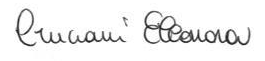 Cruciani Eleonora